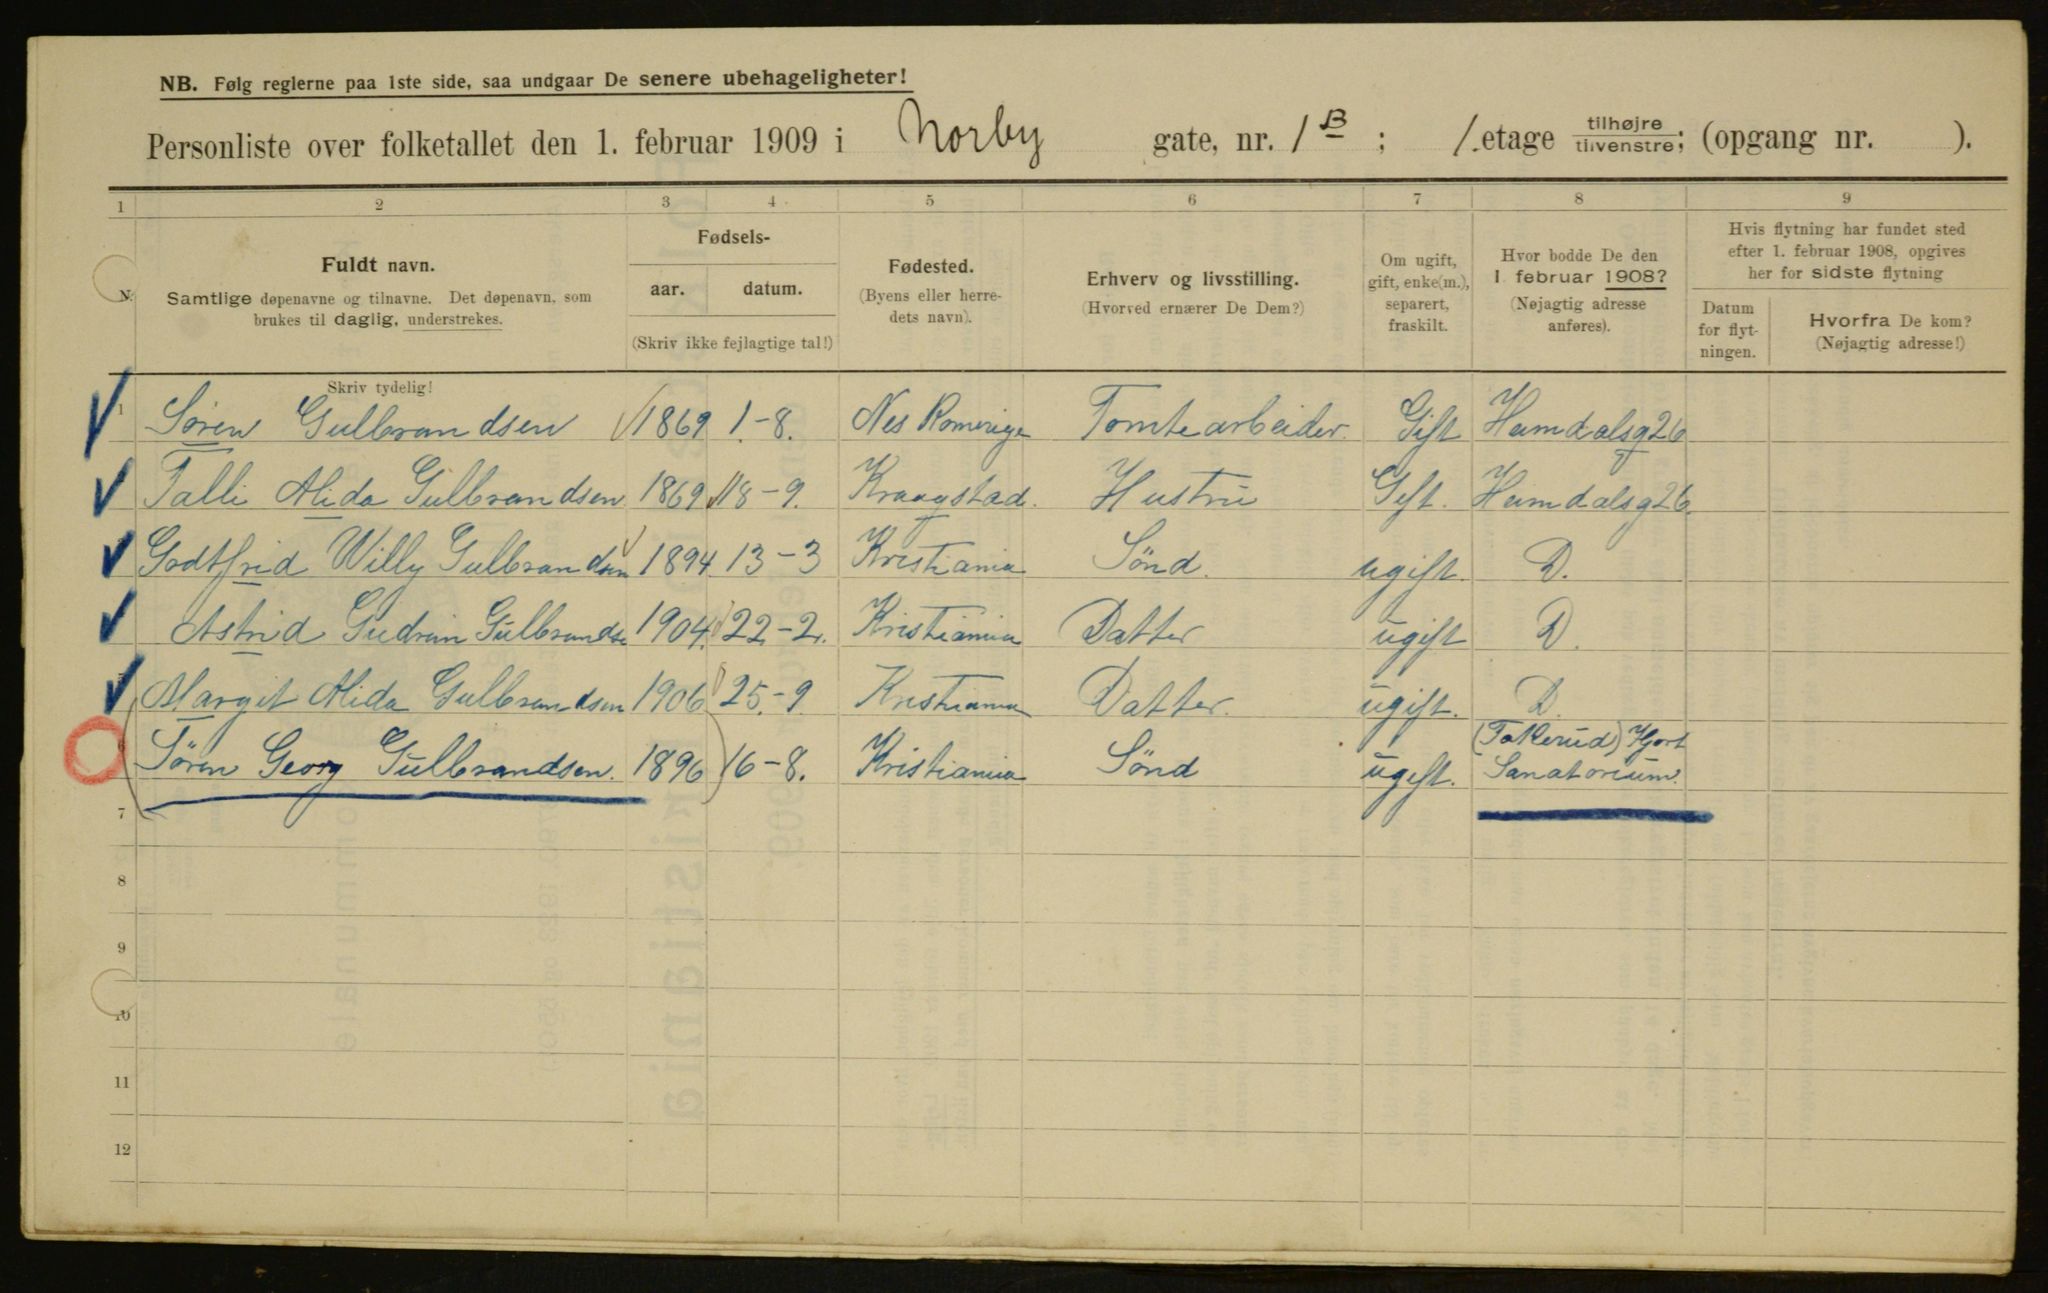 NB. Følg reglerne paa 1ste side, saa undgaar De senere ubehageligheter!
Personliste over folketallet den 1. februar 1909 i Norby gate, nr. 1 B ; 1. etage tilhøjre tilvenstre; (opgang nr. ).
1 2 3 4 5 6 7 8 9
N.
Fuldt navn.
Samtlige døpenavne og tilnavne. Det døpenavn, som
brukes til daglig, understrekes.
Skriv tydelig!
Fødsels-
aar. datum.
(Skriv ikke fejlagtige tal!)
Fødested.
(Byens eller herre-
dets navn).
Erhverv og livsstilling.
(Hvorved ernærer De Dem?)
Om ugift,
gift, enke(m.),
separert,
fraskilt.
Hvor bodde De den
1 februar 1908?
(Nøjagtig adresse
anføres).
Hvis flytning har fundet sted
efter 1. februar 1908, opgives
her for sidste flytning
Datum
for flyt-
ningen.
Hvorfra De kom?
(Nøjagtig adresse!)
1 Søren Gulbrandsen 1869 1.-8. Nes Romerige Tomtearbeider. Gift Heimdalsg 26
Talli Alida Gulbrandsen 1869 18-9. Kraagstad. Hustru Gift. Heimdalsg 26.
Godtfrid Willy Gulbrandsen 1894 13-3 Kristiania Sönd. ugift. D.
Astrid Gudrun Gulbrandse 1904. 22-2. Kristiania Datter ugift D.
Margit Alida Gulbrandsen 1906 25.-9 Kristiania Datter. ugift. D.
6 Søren Georg Gulbrandsen. 1896 16-8. Kristiania Sönd ugift. (Tokerud) Hjort
Sanatorium.
7
8
9
10
11
12